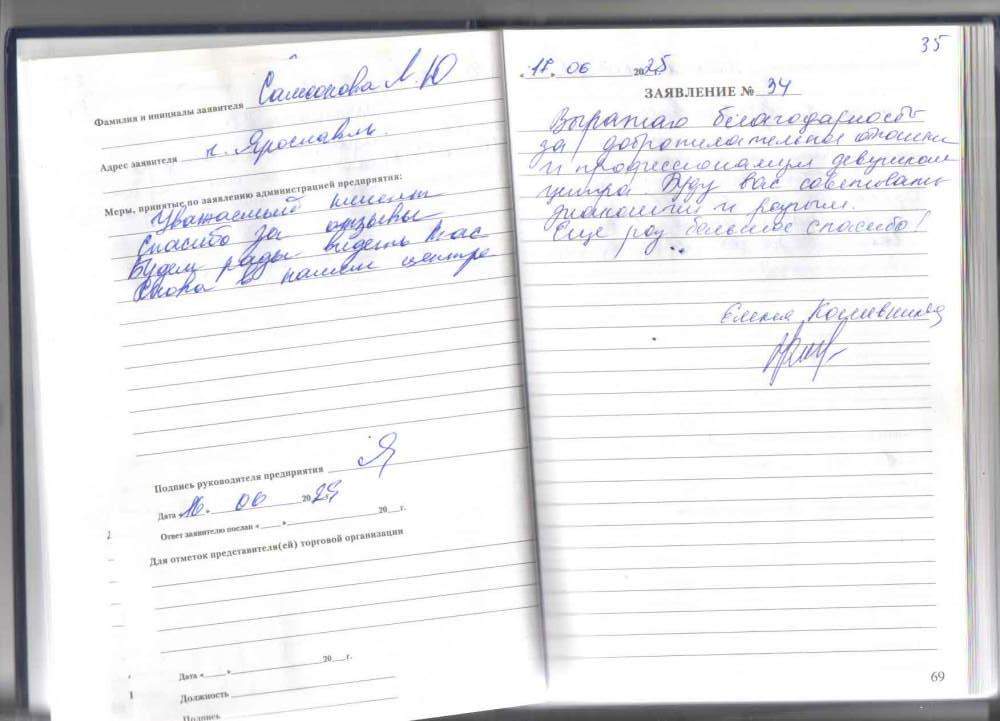 Фамилия и инициалы заявителя Самсонова Л.Ю
Адрес заявителя г. Ярославль.
Меры, принятые по заявлению администрацией предприятия:
Уважаемый клиент
Спасибо за отзывы
Будем рады видеть Вас
снова в нашем центре
Подпись руководителя предприятия
Дата «16» 06 20 г.
Ответ заявителю послан « » 20 г.
Для отметок представителя(ей) торговой организации
Дата « » 20 г.
Должность
Подпись
35
«17» 06 2025
ЗАЯВЛЕНИЕ № 34
Выражаю благодарность
за доброжелательное отношение
и профессионализм девушкам
центра. Буду вас советовать
знакомым и родным.
Еще раз большое спасибо!
Елена
69